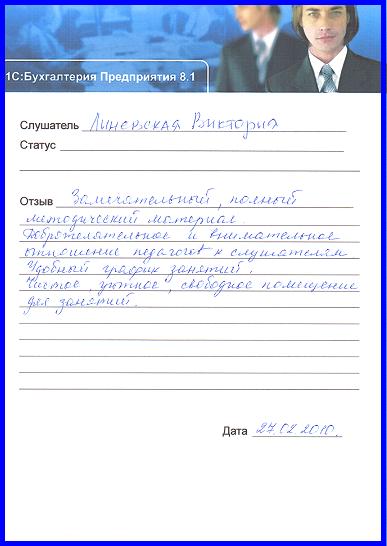 1С:Бухгалтерия Предприятия 8.1
Слушатель Линевская Виктория
Статус
Отзыв Замечательный, полный
методический материал.
Доброжелательное и внимательное
отношение педагогов к слушателям.
Удобный график занятий.
Чистое, уютное, свободное помещение
для занятий.
Дата 27.02.2010.